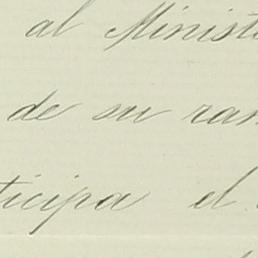 al Ministe
de su ran
ticipa el